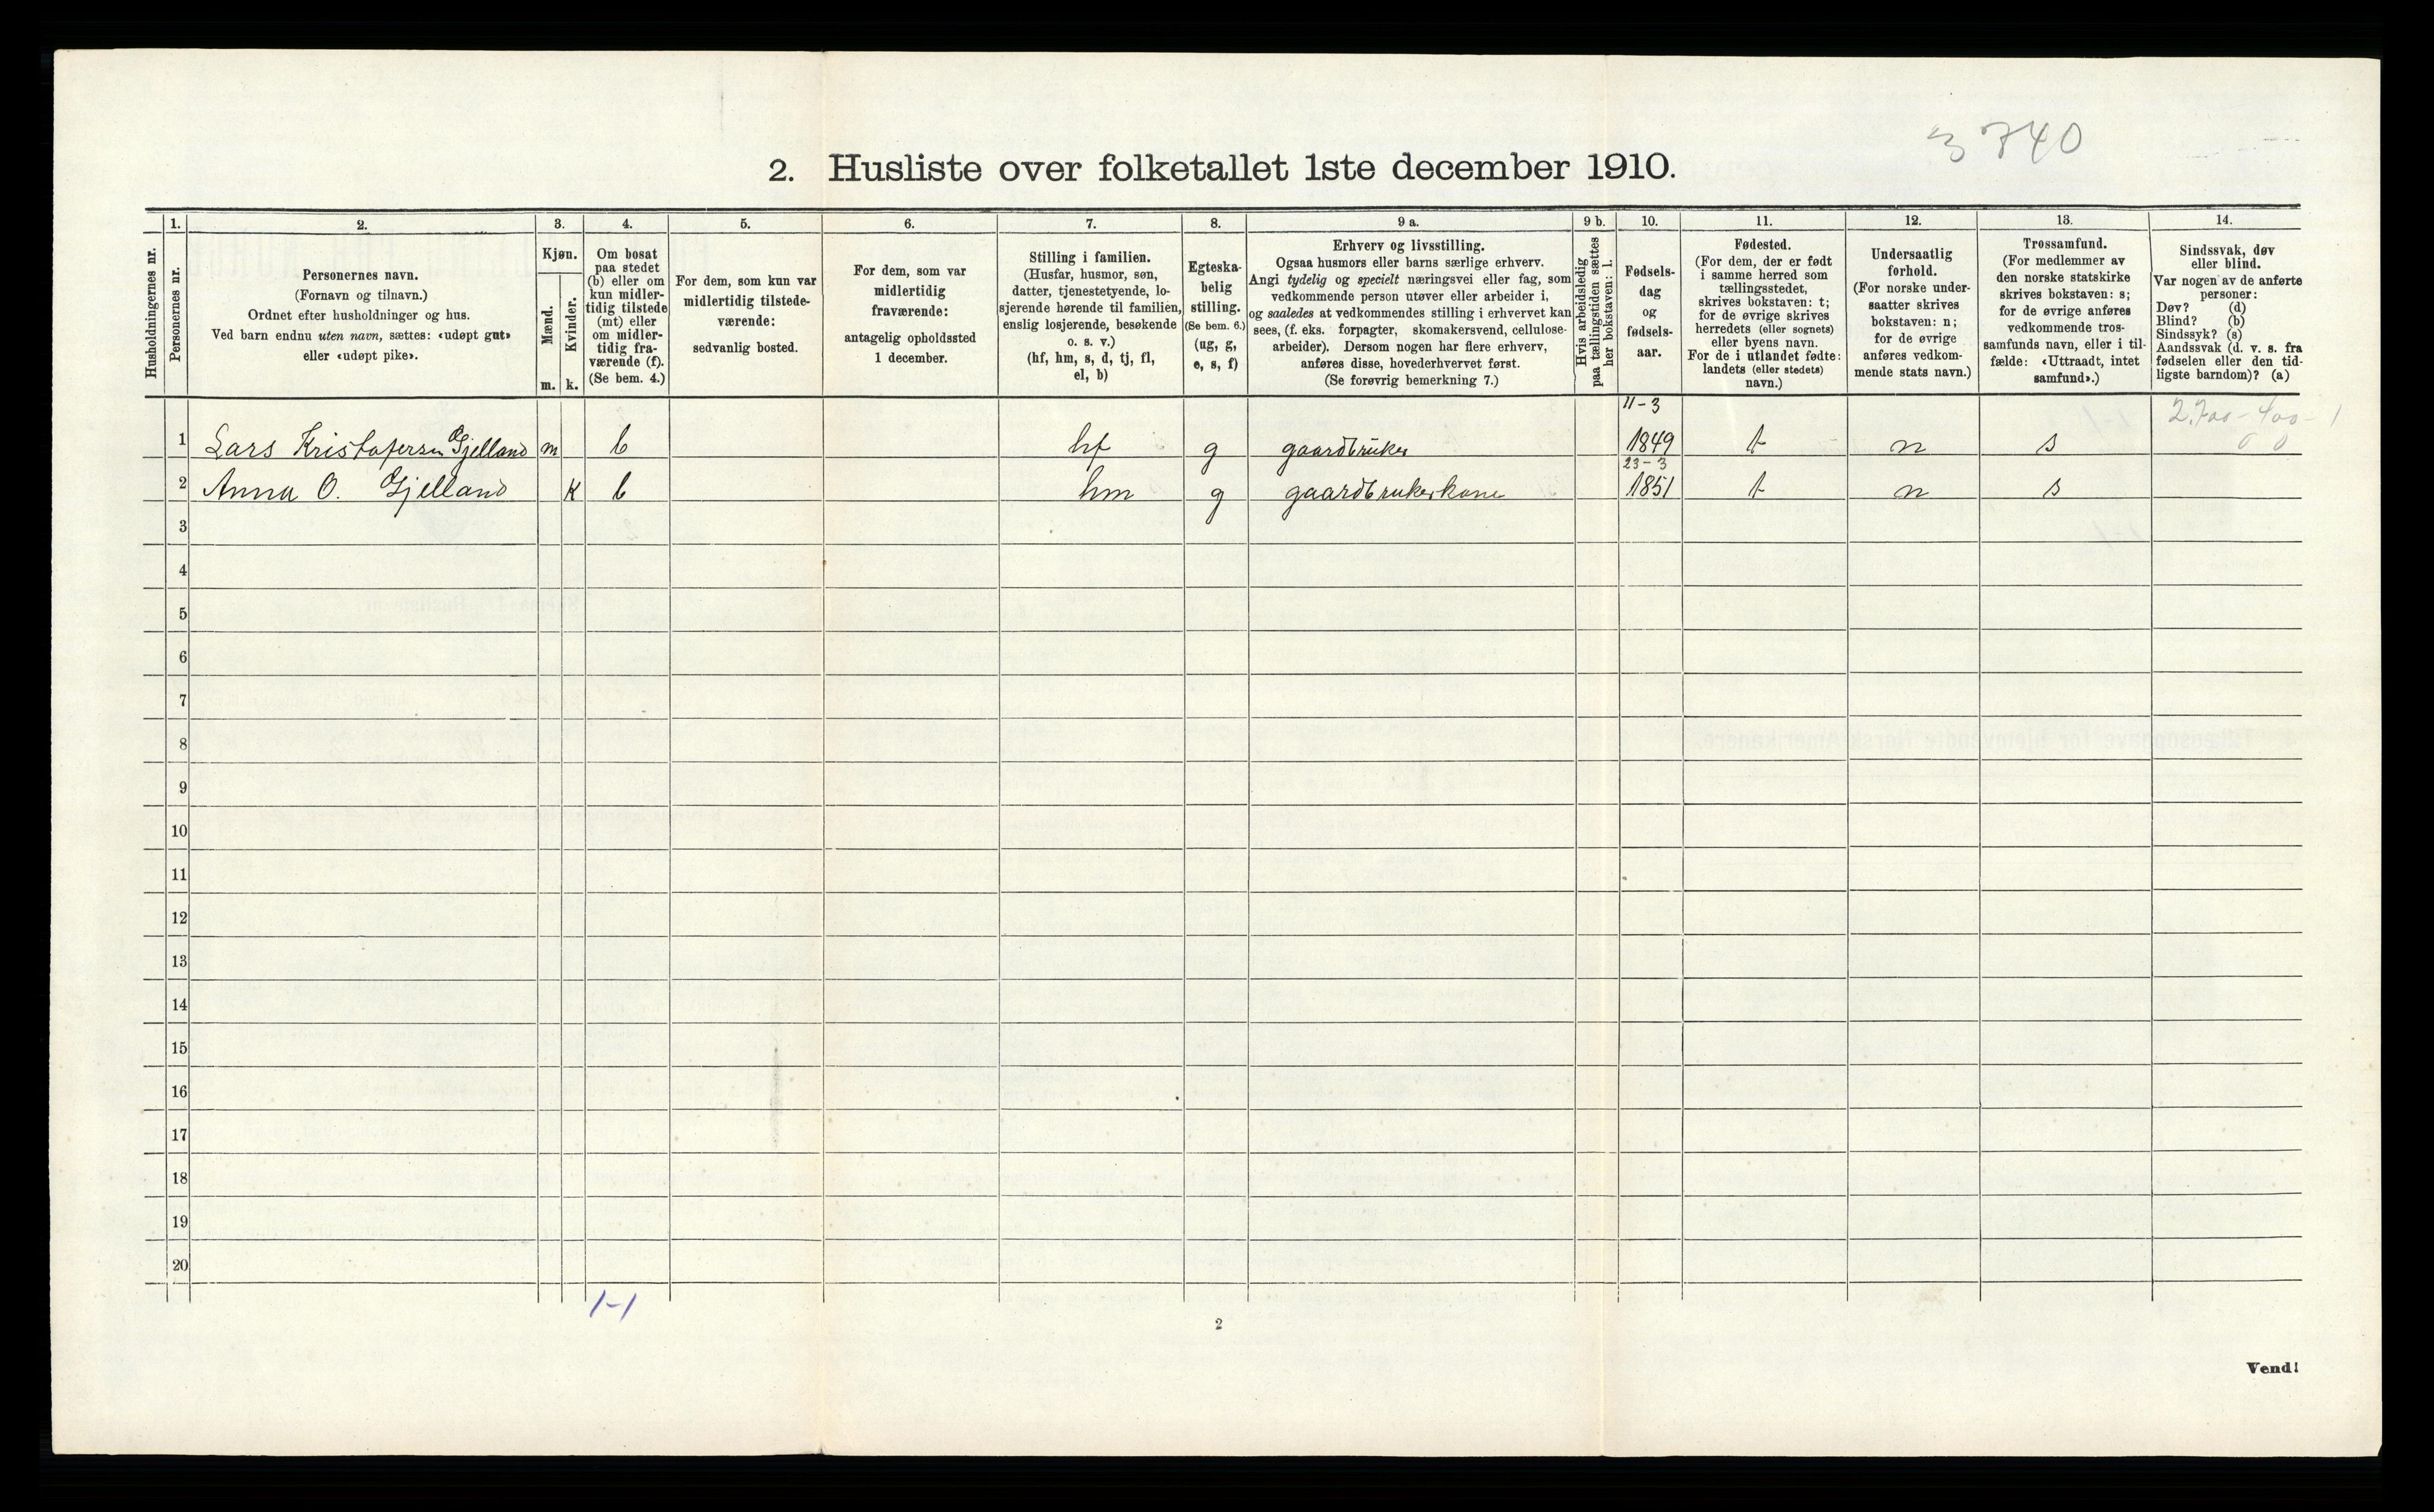 3740
2. Husliste over folketallet 1ste december 1910.
Husholdningernes nr.
1.
Personernes nr.
2.
Personernes navn.
(Fornavn og tilnavn.)
Ordnet efter husholdninger og hus.
Ved barn endnu uten navn, sættes: «udøpt gut»
eller «udøpt pike».
3.
Kjøn.
Mænd.
m.
Kvinder.
k.
4.
Om bosat
paa stedet
(b) eller om
kun midler-
tidig tilstede
(mt) eller
om midler-
tidig fra-
værende (f).
(Se bem. 4.)
5.
For dem, som kun var
midlertidig tilstede-
værende:
sedvanlig bosted.
6.
For dem, som var
midlertidig
fraværende:
antagelig opholdssted
1 december.
7.
Stilling i familien.
(Husfar, husmor, søn,
datter, tjenestetyende, lo-
sjerende hørende til familien,
enslig losjerende, besøkende
o. s. v.)
(hf, hm, s, d, tj, fl,
el, b)
8.
Egteska-
belig
stilling.
(Se bem. 6.)
(ug, g,
e, s, f)
9 a.
Erhverv og livsstilling.
Ogsaa husmors eller barns særlige erhverv.
Angi tydelig og specielt næringsvei eller fag, som
vedkommende person utøver eller arbeider i,
og saaledes at vedkommendes stilling i erhvervet kan
sees, (f. eks. forpagter, skomakersvend, cellulose-
arbeider). Dersom nogen har flere erhverv,
anføres disse, hovederhvervet først.
(Se forøvrig bemerkning 7.)
9 b.
Hvis arbeidsledig
paa tællingstiden sættes
her bokstaven: l.
10.
Fødsels-
dag
og
fødsels-
aar.
11.
Fødested.
(For dem, der er født
i samme herred som
tællingsstedet,
skrives bokstaven: t;
for de øvrige skrives
herredets (eller sognets)
eller byens navn.
For de i utlandet fødte:
landets (eller stedets)
navn.)
12.
Undersaatlig
forhold.
(For norske under-
saatter skrives
bokstaven: n;
for de øvrige
anføres vedkom-
mende stats navn.)
13.
Trossamfund.
(For medlemmer av
den norske statskirke
skrives bokstaven: s;
for de øvrige anføres
vedkommende tros-
samfunds navn, eller i til-
fælde: «Uttraadt, intet
samfund».)
14.
Sindssvak, døv
eller blind.
Var nogen av de anførte
personer:
Døv? (d)
Blind? (b)
Sindssyk? (s)
Aandssvak (d. v. s. fra
fødselen eller den tid-
ligste barndom)? (a)
11-3
2.700-400-1
0 0
1 Lars Kristofersen Gjelland m b hf g gaardbruker 1849 t n s
23-3
2 Anna O. Gjelland K b hm g gaardbrukerkone 1851 t n s
3
4
5
6
7
8
9
10
11
12
13
14
15
16
17
18
19
20
1-1
2
Vend!